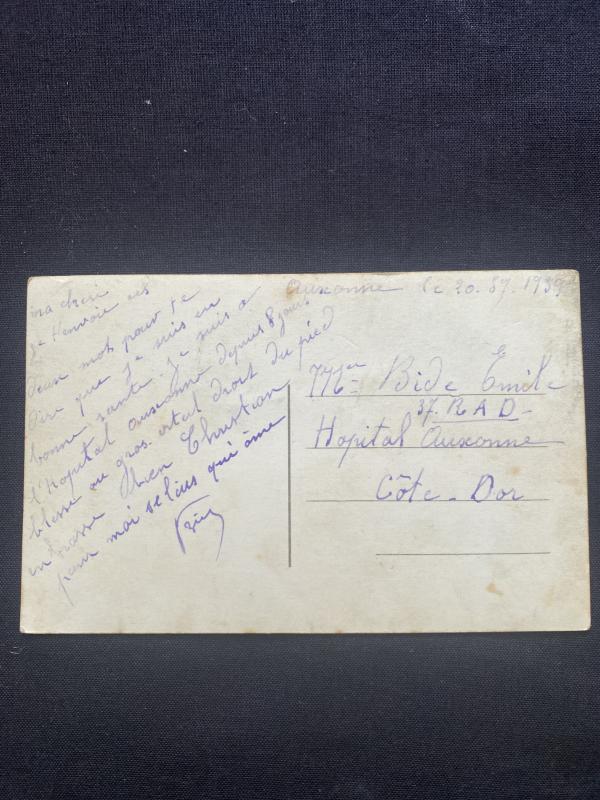 ma cheri
je t'envoie ces
deux mots pour te
dire que je suis en
bonne sante. je suis a
l'hopital auxonne depuis 8 jours
blesse au gros ortel droit du pied
embrasse bien Christian
pour moi celui qui t'aime
Auxonne le 20.8?.1939
Mr Bide Emile
37. R A D -
Hopital Auxonne
Côte - Dor